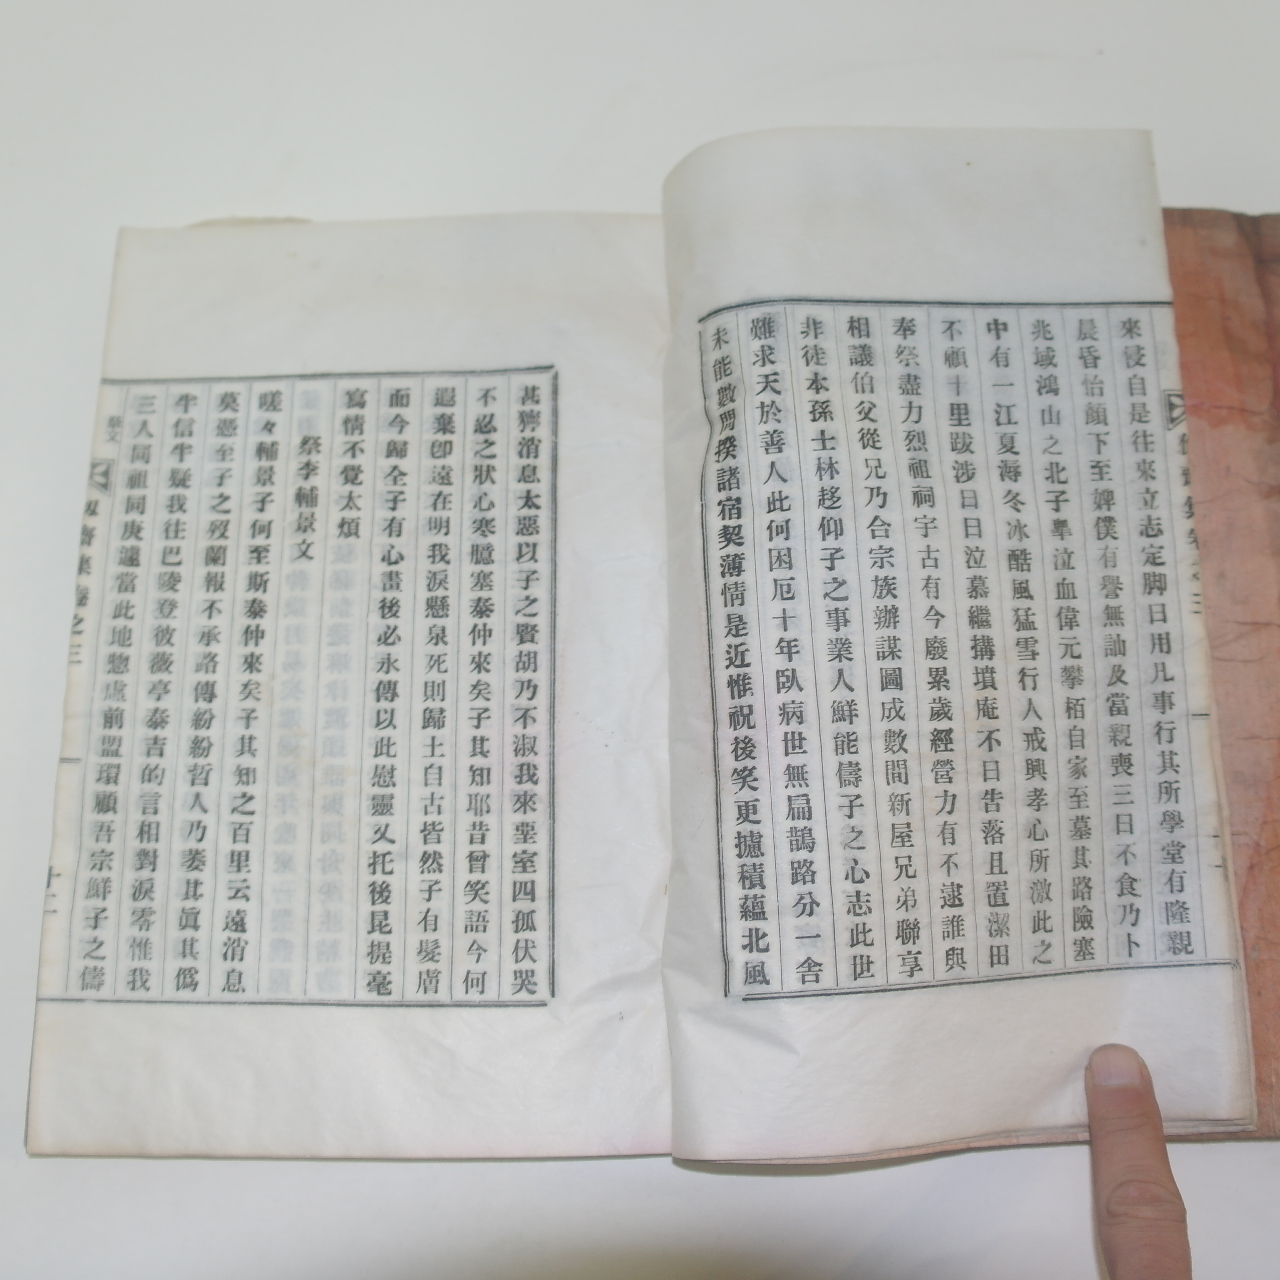 來侵自是往來立志定脚日用凡事行其所學堂有隆親
晨昏怡顔下至婢僕有譽無訕及當親喪三日不食乃卜
兆域鴻山之北子擧泣血偉元攀栢自家至墓其路險塞
中有一江夏海冬冰酷風猛雪行人戒興孝心所激此之
不顧十里跋涉日日泣慕繼搆墳庵不日告落且置潔田
奉祭盡力烈祖祠宇古有今廢累歲經營力有不逮誰與
相議伯父從兄乃合宗族辦謀圖成數間新屋兄弟聯享
非徒本孫士林趍仰子之事業人鮮能儔子之心志此世
難求天於善人此何困厄十年臥病世無扁鵲路分一舍
未能數問揆諸宿契薄情是近惟祝後笑更攄積蘊北風
甚獰消息太惡以子之賢胡乃不淑我來堊室四孤伏哭
不忍之狀心寒臆塞泰仲來矣子其知耶昔曾笑語今何
遐棄卽遠在明我淚懸泉死則歸土自古皆然子有髮膚
而今歸全子有心畫後必永傳以此慰靈又托後昆提毫
寫情不覺太煩
祭李輔景文
嗟々輔景子何至斯泰仲來矣子其知之百里云遠消息
莫憑至子之歿蘭報不承路傳紛紛哲人乃萎其眞其僞
半信半疑我往巴陵登彼薇亭泰吉的言相對淚零惟我
三人同祖同庚遽當此地惣虛前盟環顧吾宗鮮子之儔
祭文
齋集卷之三
十二